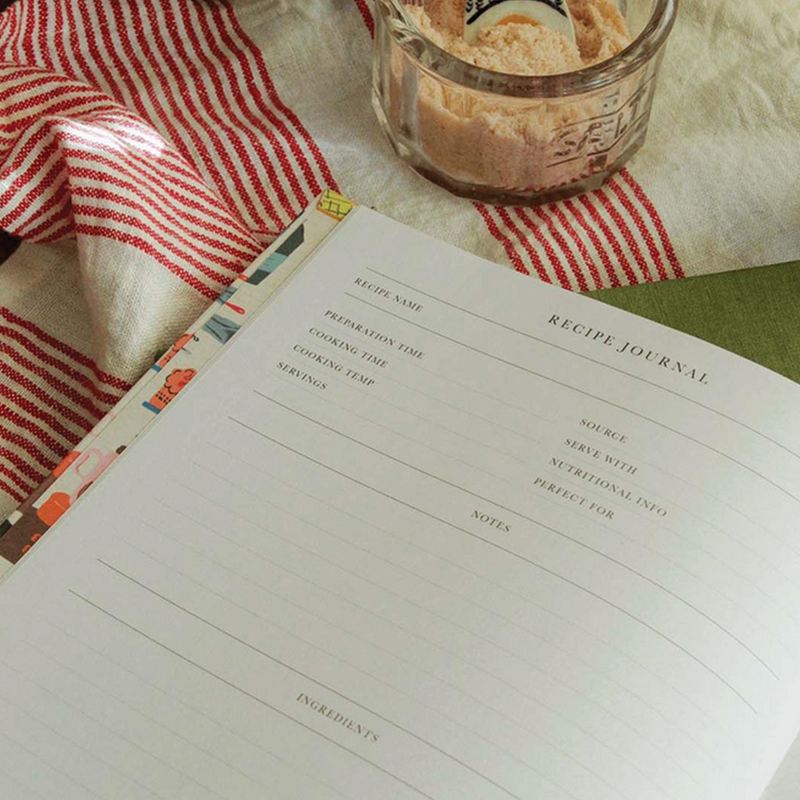 SALT
RECIPE JOURNAL
RECIPE NAME
PREPARATION TIME
COOKING TIME
COOKING TEMP
SERVINGS
SOURCE
SERVE WITH
NUTRITIONAL INFO
PERFECT FOR
NOTES
INGREDIENTS